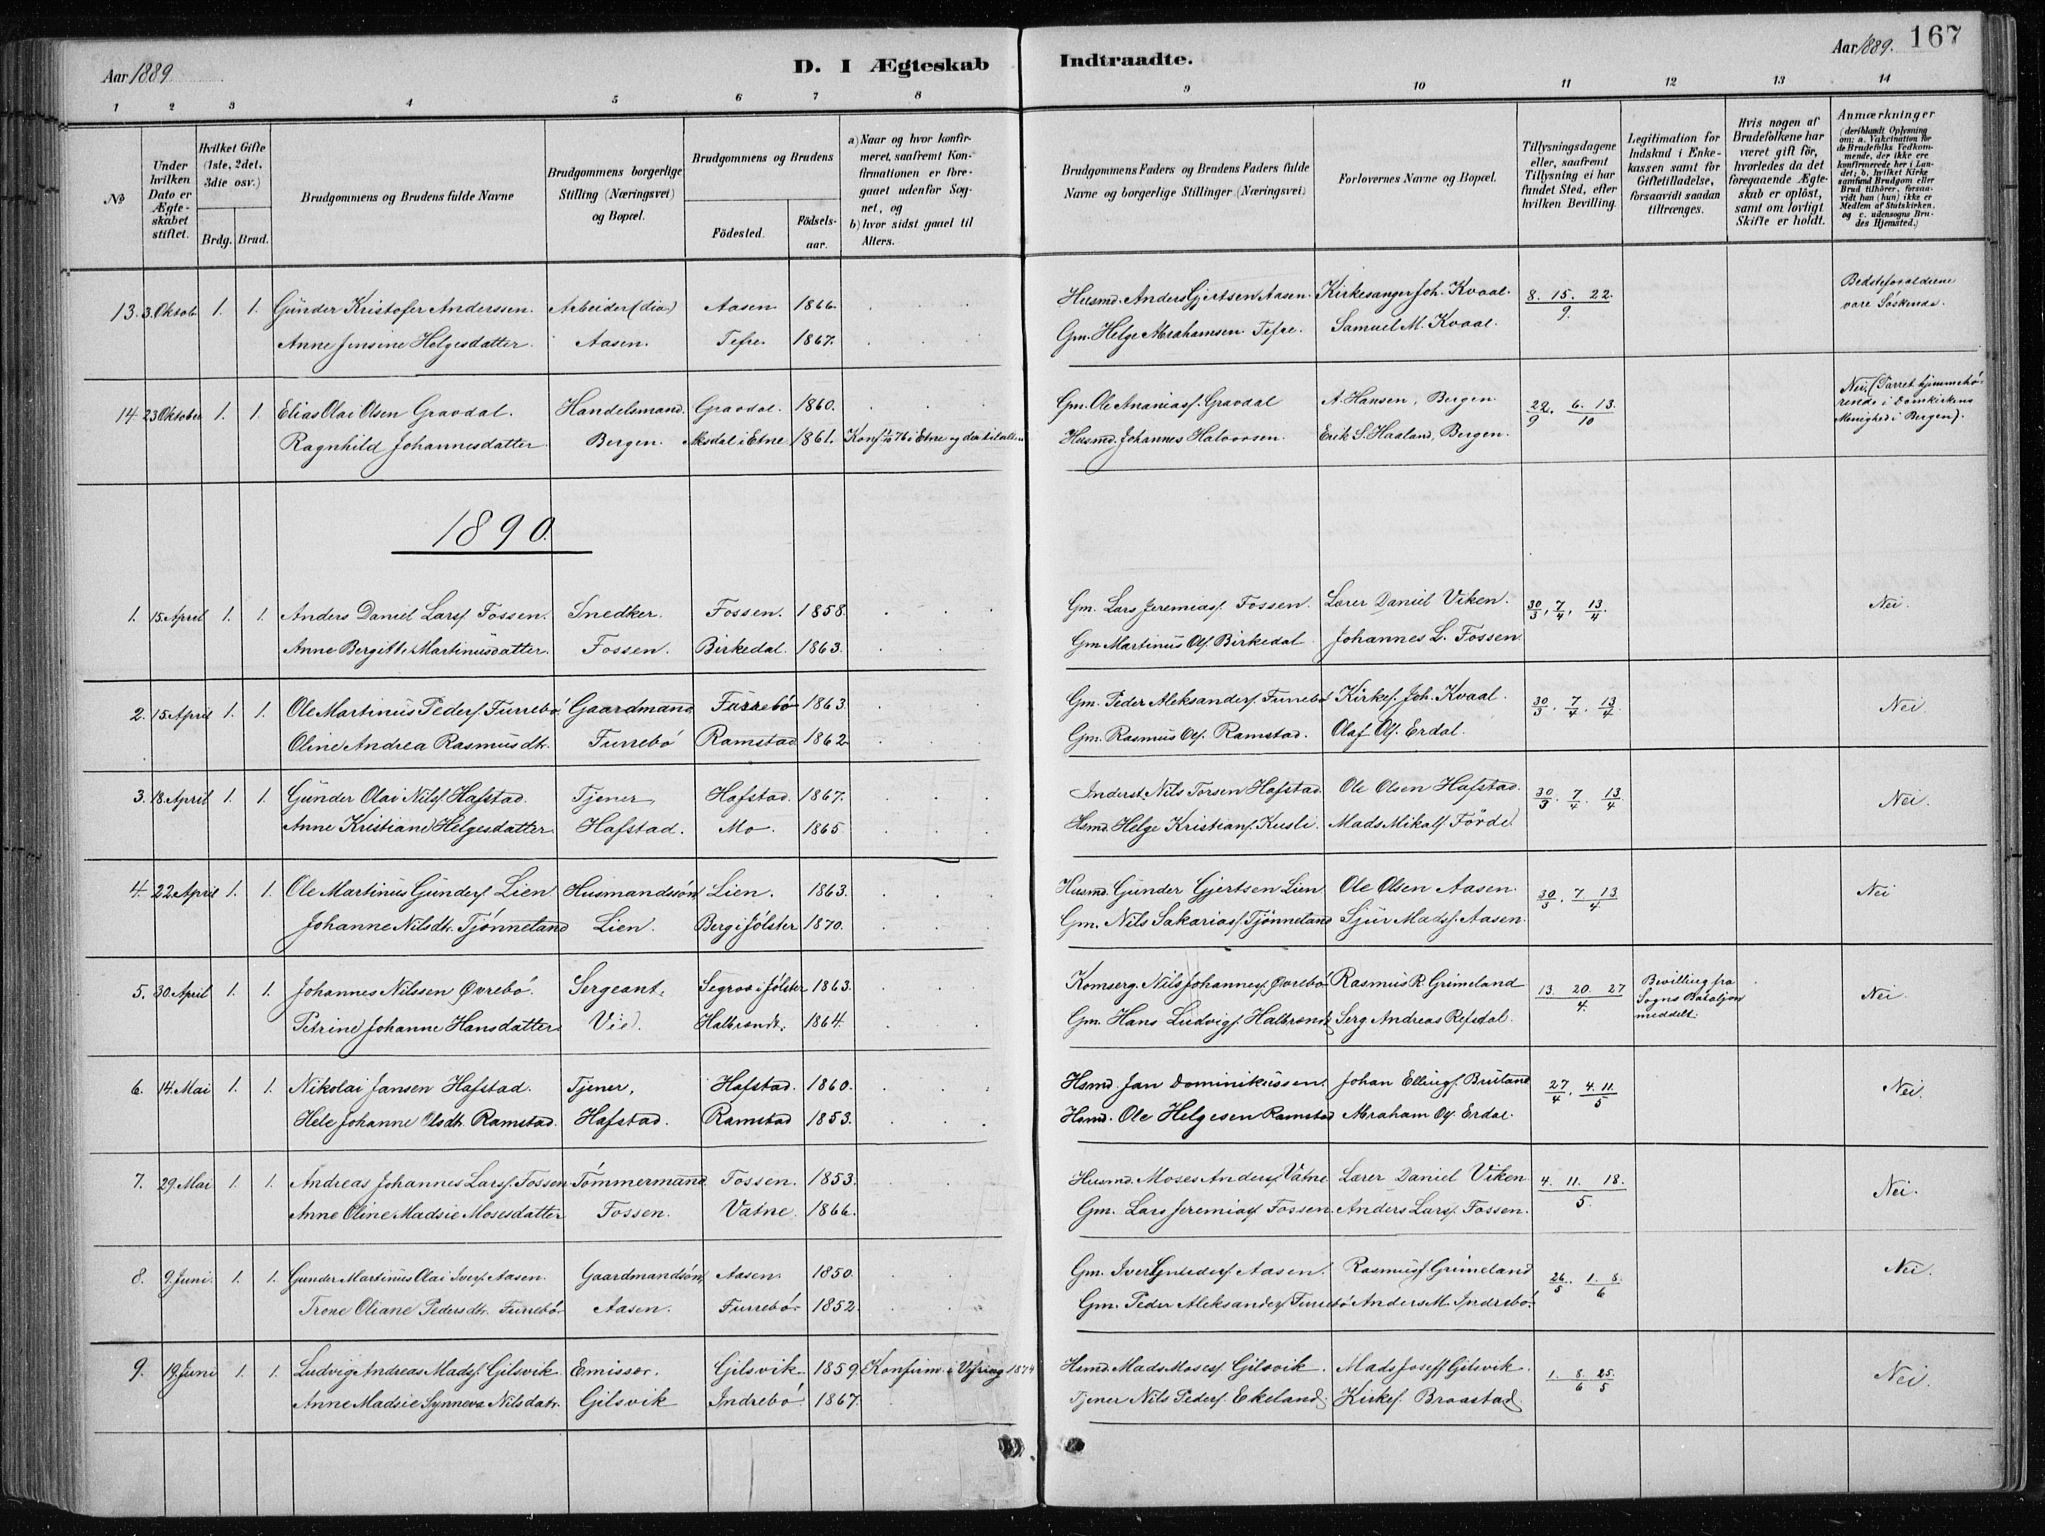 Aar 1889.
D. I Ægteskab
Indtraadte.
Aar 1889.
167
1 2 3 4 5 6 7 8 9 10 11 12 13 14
No
Under hvilken Dato er Ægteskabet stiftet.
Hvilket Gifte (1ste, 2det, 3die osv.)
Brdg. Brud.
Brudgommens og Brudens fulde Navne
Brudgommens borgerlige Stilling (Næringsvei) og Bopæl.
Brudgommens og Brudens
Födested.
Födselsaar.
a) Naar og hvor konfirmeret, saafremt Konfirmationen er foregaaet udenfor Sognet, og
b) hvor sidst gaaet til Alters.
Brudgommens Faders og Brudens Faders fulde Navne og borgerlige Stillinger (Næringsvei)
Forlovernes Navne og Bopæl.
Tillysningsdagene eller, saafremt Tillysning ei har fundet Sted, efter hvilken Bevilling.
Legitimation for Indskud i Enkekassen samt for Giftetilladelse, forsaavidt saadan tiltrænges.
Hvis nogen af Brudefolkene har været gift för, hvorledes da det foregaaende Ægteskab er oplöst, samt om lovligt Skifte er holdt.
Anmærkninger
(deriblandt Oplysning om: a. Vakcination for de Brudefolks Vedkommende, der ikke ere konfirmerede her i Landet; b. hvilket Kirkesamfund Brudgom eller Brud tilhörer, forsaavidt han (hun) ikke er Medlem af Statskirken, og c. udensogns Brudes Hjemsted.)
13. 3 Oktob. 1. 1. Gunder Kristofer Anderssen. Arbeider Aasen 1866. Husmd. Anders Gjertsen Aasen. Kirkesanger Joh. Kvaal. 8. 15. 22. / 9. Bedsteforældrene vare Søskende.
Anne Jensene Helgesdatter. Aasen. Tefre. 1867. Gm. Helge Abrahamsen Tefre. Samuel M. Kvaal.
14. 23 Oktober 1. 1. Elias Olai Olsen Gravdal. Handelsmand. Gravdal. 1860. Gm. Ole Ananiass. Gravdal A. Hansen, Bergen. 22/9. 6. 13./10 Nei. (Parret hjemmehørende i Domkirkens Menighed i Bergen).
Ragnhild Johannesdatter. Bergen. Aksdal i Etne 1861. Konf. 76 i Etne og der til alters Husmd. Johannes Halvorsen. Erik S. Haaland, Bergen.
1890.
1. 15 April 1. 1. Anders Daniel Larss. Fossen. Snedker. Fossen. 1858. Gm. Lars Jeremiass. Fossen. Lærer Daniel Viken. 30/3, 7/4, 13/4 Nei.
Anne Bergitte Martinusdatter. Fossen. Birkedal. 1863. Gm. Martinus Ols. Birkedal. Johannes L. Fossen.
2. 15 April 1. 1. Ole Martinus Peders. Furrebø. Gaardmand Furrebø 1863. Gm. Peder Aleksanders. Furrebø Kirkes. Joh. Kvaal. 30/3. 7/4. 13/4 Nei.
Oline Andrea Rasmusdtr. Furrebø Ramstad. 1862. Gm. Rasmus Ols. Ramstad. Olaf Ols. Erdal.
3. 18 April 1. 1. Gunder Olai Nilss. Hafstad. Tjener, Hafstad. 1867. Inderst. Nils Torsen Hafstad. Ole Olsen Hafstad. 30/3. 7/4. 13/4 Nei.
Anne Kristiane Helgesdatter. Hafstad. Mo. 1865 Hsmd. Helge Kristians. Kusli. Mads Mikals. Førde.
4. 22 April 1. 1. Ole Martinus Gunders. Lien Husmandssøn Lien. 1863. Husmd. Gunder Gjertsen Lien Ole Olsen Aasen. 30/3. 7. 13/4 Nei
Johanne Nilsdtr. Tjønneland Lien. Berg i Jølster 1870. Gm. Nils Sakarias. Tjønneland Sjur Madss. Aasen.
5. 30 April 1. 1. Johannes Nilssen Øvrebø. Sergeant, Segrov i Jølster 1863. Komserg. Nils Johanness. Øvrebø Rasmus R. Grimeland 13. 20. 27 / 4. Bevilling fra Sogns Bataljon meddelt. Nei.
Petrine Johanne Hansdatter Vie. Halbrendt. 1864. Gm. Hans Ludvigs. Halbrendt Serg. Andreas Refsdal.
6. 14 Mai 1. 1. Nikolai Jansen Hafstad. Tjener, Hafstad. 1860. Hsmd. Jan Dominikussen. Johan Ellings. Bruland 27/4. 4. 11/5 Nei.
Hele Johanne Olsdtr. Ramstad. Hafstad. Ramstad 1853. Husmd. Ole Helgesen Ramstad Abraham Ols. Erdal.
7. 29 Mai 1. 1. Andreas Johannes Larss. Fossen Tømmermand. Fossen. 1853. Husmd. Moses Anders. Vatne Lærer Daniel Viken 4. 11. 18. / 5. Nei.
Anne Oline Madsie Mosesdatter Fossen. Vatne. 1866. Gm. Lars Jeremiass. Fossen. Anders Larss. Fossen.
8. 9 Juni. 1. 1. Gunder Martinus Olai Ivers. Aasen. Gaardmandsøn Aasen. 1850. Gm. Iver Gunders. Aasen. Rasmus Grimeland 26/5. 1. 8./6 Nei.
Trone Oliane Pedersdtr. Furrebø. Aasen. Furrebø. 1852. Gm. Peder Aleksanders. Furrebø Anders M. Indrebø.
9. 19 Juni 1. 1. Ludvig Andreas Madss. Gilsvik Emissær. Gilsvik 1859. Konfirm. i Vefring 1874 Hsmd. Mads Moses. Gilsvik. Mads Josefs. Gilsvik. 1. 8./6 25./5 Nei.
Anne Madsie Synneva Nilsdatr. Gilsvik Indrebø. 1867. Tjener Nils Peders. Ekeland. Kirkes. Braastad